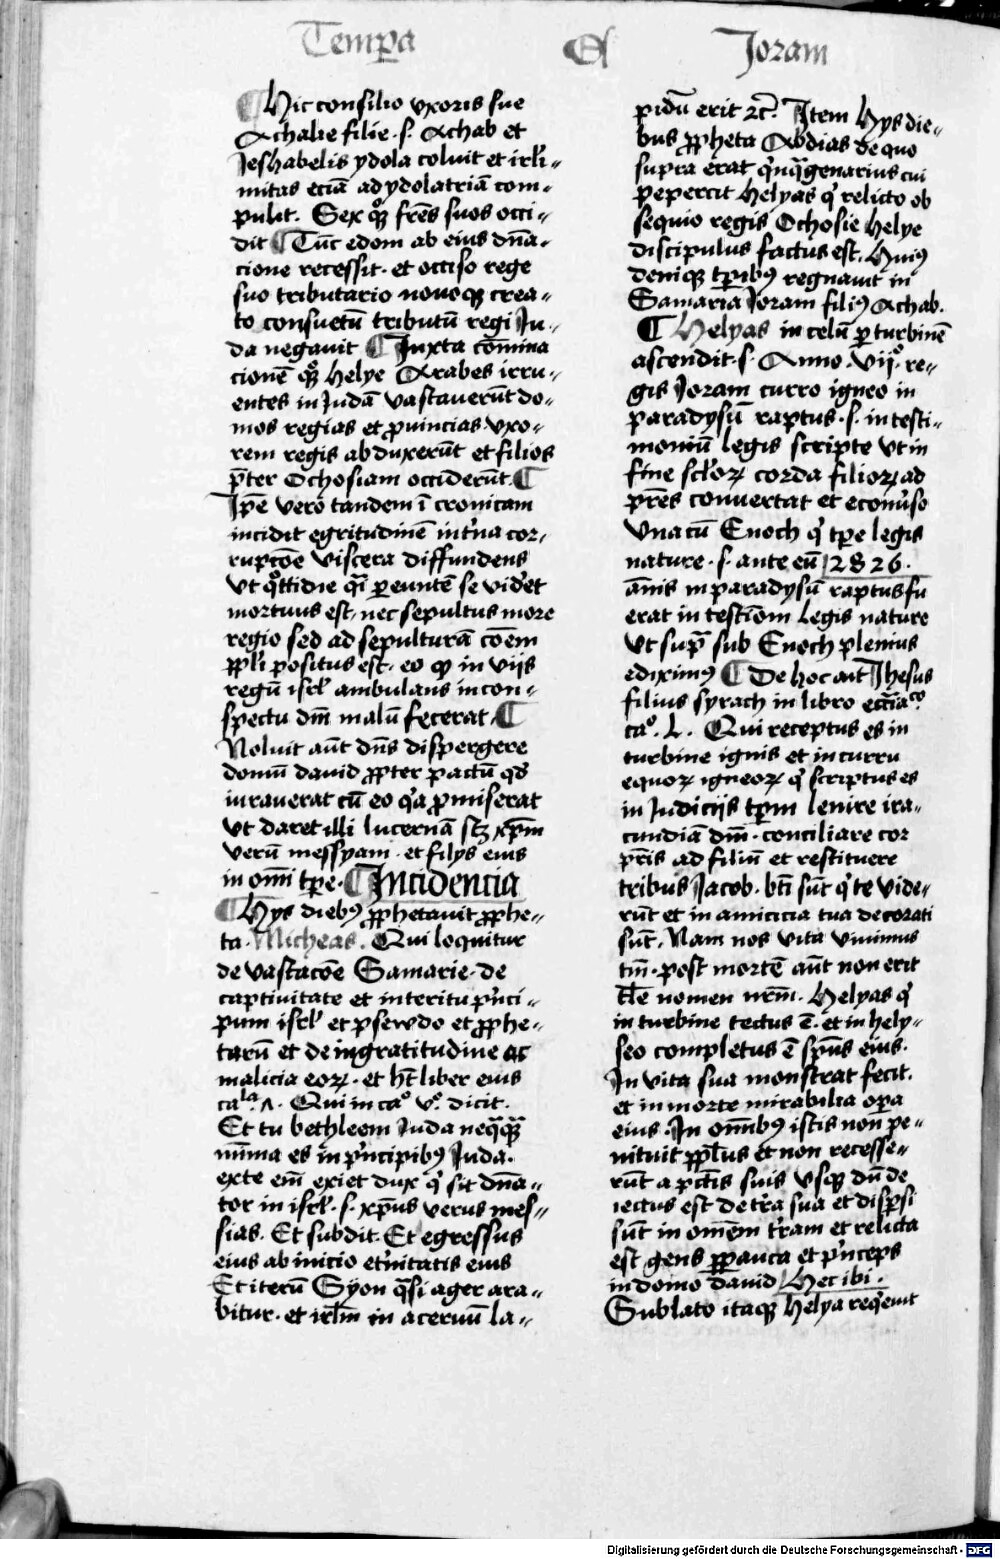 Tempa Et Joram
¶ Hic consilio vxoris sue
Athalie filie .s. Achab et
Jeshabelis ydola coluit et irl̄i⸗
mitas eciā ad ydolatriā com⸗
pulit. Sex qͦꝫ frēs suos occi⸗
dit ¶ Tūc edom ab eius dn̄a⸗
cione recessit. et occiso rege
suo tributario nouoqꝫ crea⸗
to consuetū tributū regi Ju⸗
da negauit ¶ Juxta cōmina
cionē qͦꝫ Helye Arabes irru⸗
entes in Judā vastauerūt do⸗
mos regias et ꝓuincias vxo⸗
rem regis abduxerūt et filios
p̄ter Ochosiam occiderūt. ¶
Ip̄e vero tandem ī cronicam
incidit egritudinē int'na cor⸗
rupcōe viscera diffundens
vt qͦttidie qͣi ꝑeuntē se vid'et
mortuus est. nec sepultus more
regio sed ad sepulturā cōem
ppl'i positus est. eo qͩ in viis
regū isrl' ambulans in con⸗
spectu dn̄i malū fecerat. ¶
Noluit aūt dn̄s dispergere
domū dauid ꝓpter pactū qd'
iurauerat cū eo q'a ꝓmiserat
vt daret illi lucernā scꝫ xp̄m
verū messyam. et filys eius
in om̄i tꝑe. ¶ Incidencia
¶ Hys diebꝰ ꝓphetauit ꝓphe⸗
ta. Micheas. Qui loquitur
de vastacōe Samarie. de
captiuitate et interitu p'nci⸗
pum isrl' et psewdo et ꝓphe⸗
tarū et de ingratitudine ac
malicia eoꝝ. et h̄t liber eius
caͣˡᵃ ʌ. Qui in caͦ vͦ. dicit.
Et tu bethleem Juda neqͣqͣꝫ
mīma es in p'ncipibꝰ Juda.
exte em̄ exiet dux q' sit dn̄a⸗
tor in isrl'. s. xp̄us verus mes⸗
sias. Et subdit. Et egressus
eius ab inicio et'nitatis eius
Et iterū Syon qͣsi ager ara⸗
bitur. et irl̄m in aceruū la⸗
pidū erit ⁊c̄. Item Hys die⸗
bus ꝓpheta Abdias de quo
supra erat q'nqͣgenarius cui
pepercit Helyas q' relicto ob
sequio regis Ochosie Helye
discipulus factus est. Huiꝰ
deniqꝫ tꝑibꝰ regnauit in
Samaria Joram filiꝰ Achab.
¶ Helyas in celū ꝑ turbinē
ascendit .s. Anno. vijͦ. re⸗
gis Joram curro igneo in
paradysū raptus .s. in testi⸗
moniū legis scripte vt in
fine scl'oꝝ corda filioꝝ ad
p̄res conuertat et econu'so
vna cū Enoch q' tꝑe legis
nature .s. ante eū 2826.
ānis in paradysū raptus fu
erat in testīom legis nature
vt supͣ sub Enoch plenius
ediximꝰ ¶ De hoc ait Jhesus
filius syrach in libro ecc̄iaͨͦ
caͦ. L. Qui receptus es in
turbine ignis et in curru
equoꝝ igneoꝝ q' scriptus es
in Judicijs tꝑm lenire ira⸗
cundiā dn̄i. conciliare cor
p̄ris ad filiū et restituere
tribus Jacob. bt̄i sūt q' te vide⸗
rūt et in amicicia tua decorati
sūt. Nam nos vita viuimus
tm̄. post mortē aūt non erit
tl̄e nomen nr̄m. Helyas q'
in turbine tectus ē. et in hely⸗
seo completus ē sp̄us eius.
In vita sua monstrat fecit.
et in morte mirabilia oꝑa
eius. In om̄ibus istis non pe⸗
nituit ppl'us et non recesse⸗
rūt a pctīs suis vsqꝫ dū de
iectus est de t'ra sua et disp'si
sūt in omēm t'ram et relicta
est gens ꝑpauca et p'nceps
in domo dauid Hec ibi.
Sublato itaqꝫ Helya req'euit
Digitalisierung gefördert durch die Deutsche Forschungsgemeinschaft - DFG